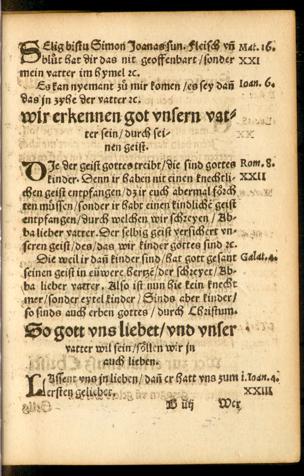 SElig bistu Simon Joanas sun. Fleisch vñ Mat. 16.
blůt hat dir das nit geoffenbart / sonder XXI
mein vatter im hymel ꝛc.
Es kan nyemant zů mir komen / es sey dañ Ioan. 6.
das jn zyhe der vatter ꝛc.
Wir erkennen got vnsern vat-
ter sein / durch sei-
nen geist.
DJe der geist gottes treibt / die sind gottes Rom. 8.
kinder. Denn ir haben nit einen knechtli- XXII
chen geist entpfangen / dz ir euch abermal förch
ten müssen / sonder ir habt einen kindliche geist
entpfangen / durch welchen wir schreyen / Ab-
ba lieber vatter. Der selbig geist versichert vn-
seren geist / des / das wir kinder gottes sind ꝛc.
Die weil ir dañ kinder sind / hat gott gesant Galat. 4.
seinen geist in eüwere hertzẽ / der schreyet / Ab-
ba lieber vatter. Also ist nun kein knecht
mer / sonder eytel kinder / Sinds aber kinder /
so sinds auch erben gottes / durch Christum.
So gott vns liebet / vnd vnser
vatter wil sein / söllen wir jn
auch lieben.
LAssent vns jn lieben / dañ er hatt vns zum i. Ioan. 4.
ersten geliebet. XXIII
B iij Wer